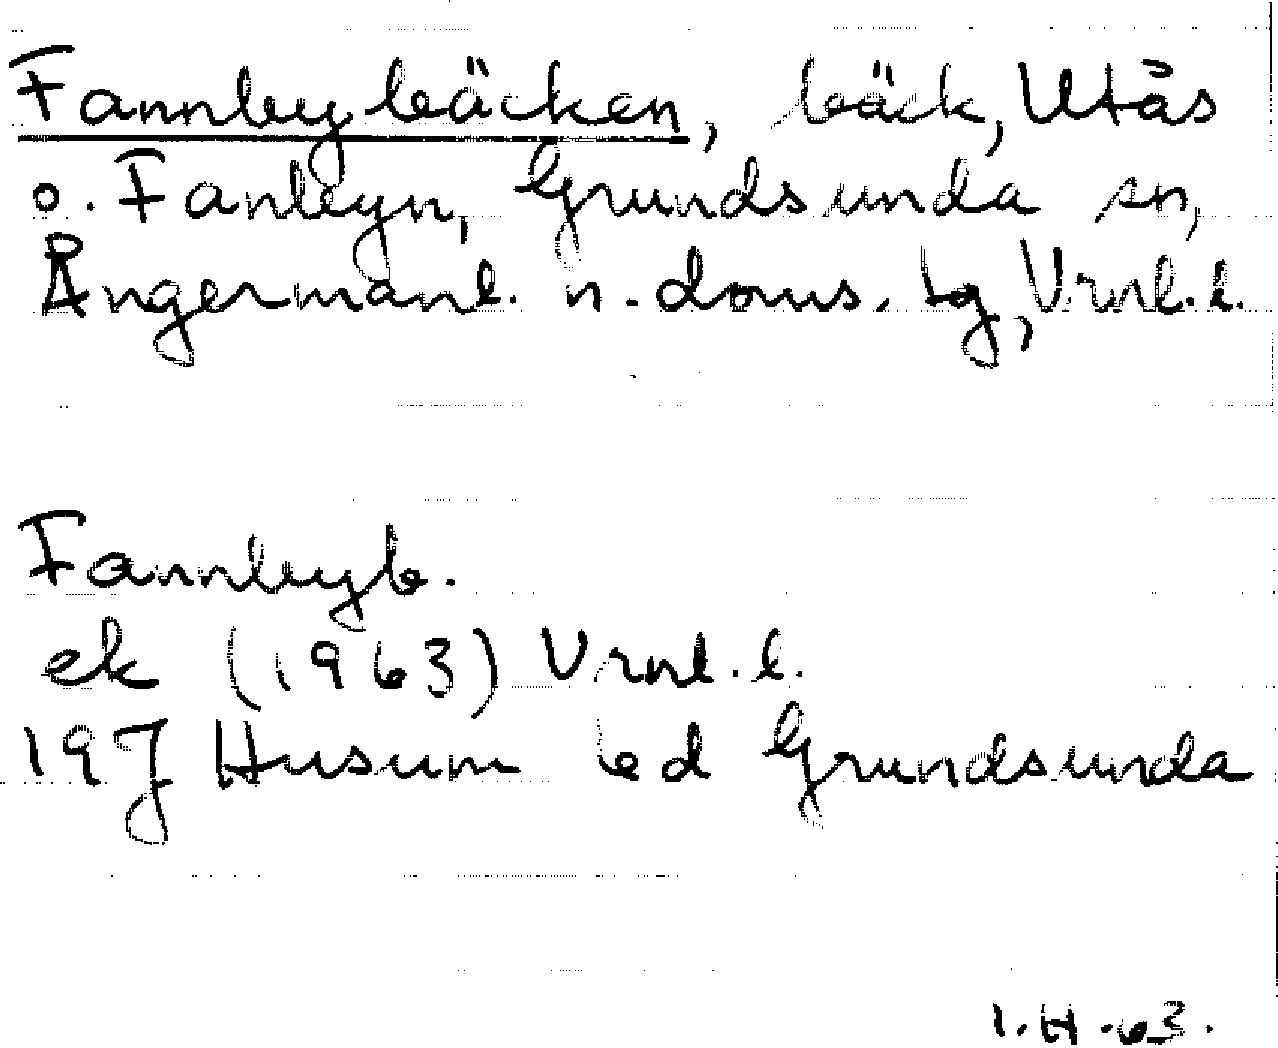 Fannbybäcken, bäck, Utås
o. Fanbyn, Grundsunda sn,
Ångermanl. n. doms. tg, Vrnl. l.
Fannbyb.
ek (1963) Vrnl. l.
19J Husum bd Grundsunda
I.H.63.